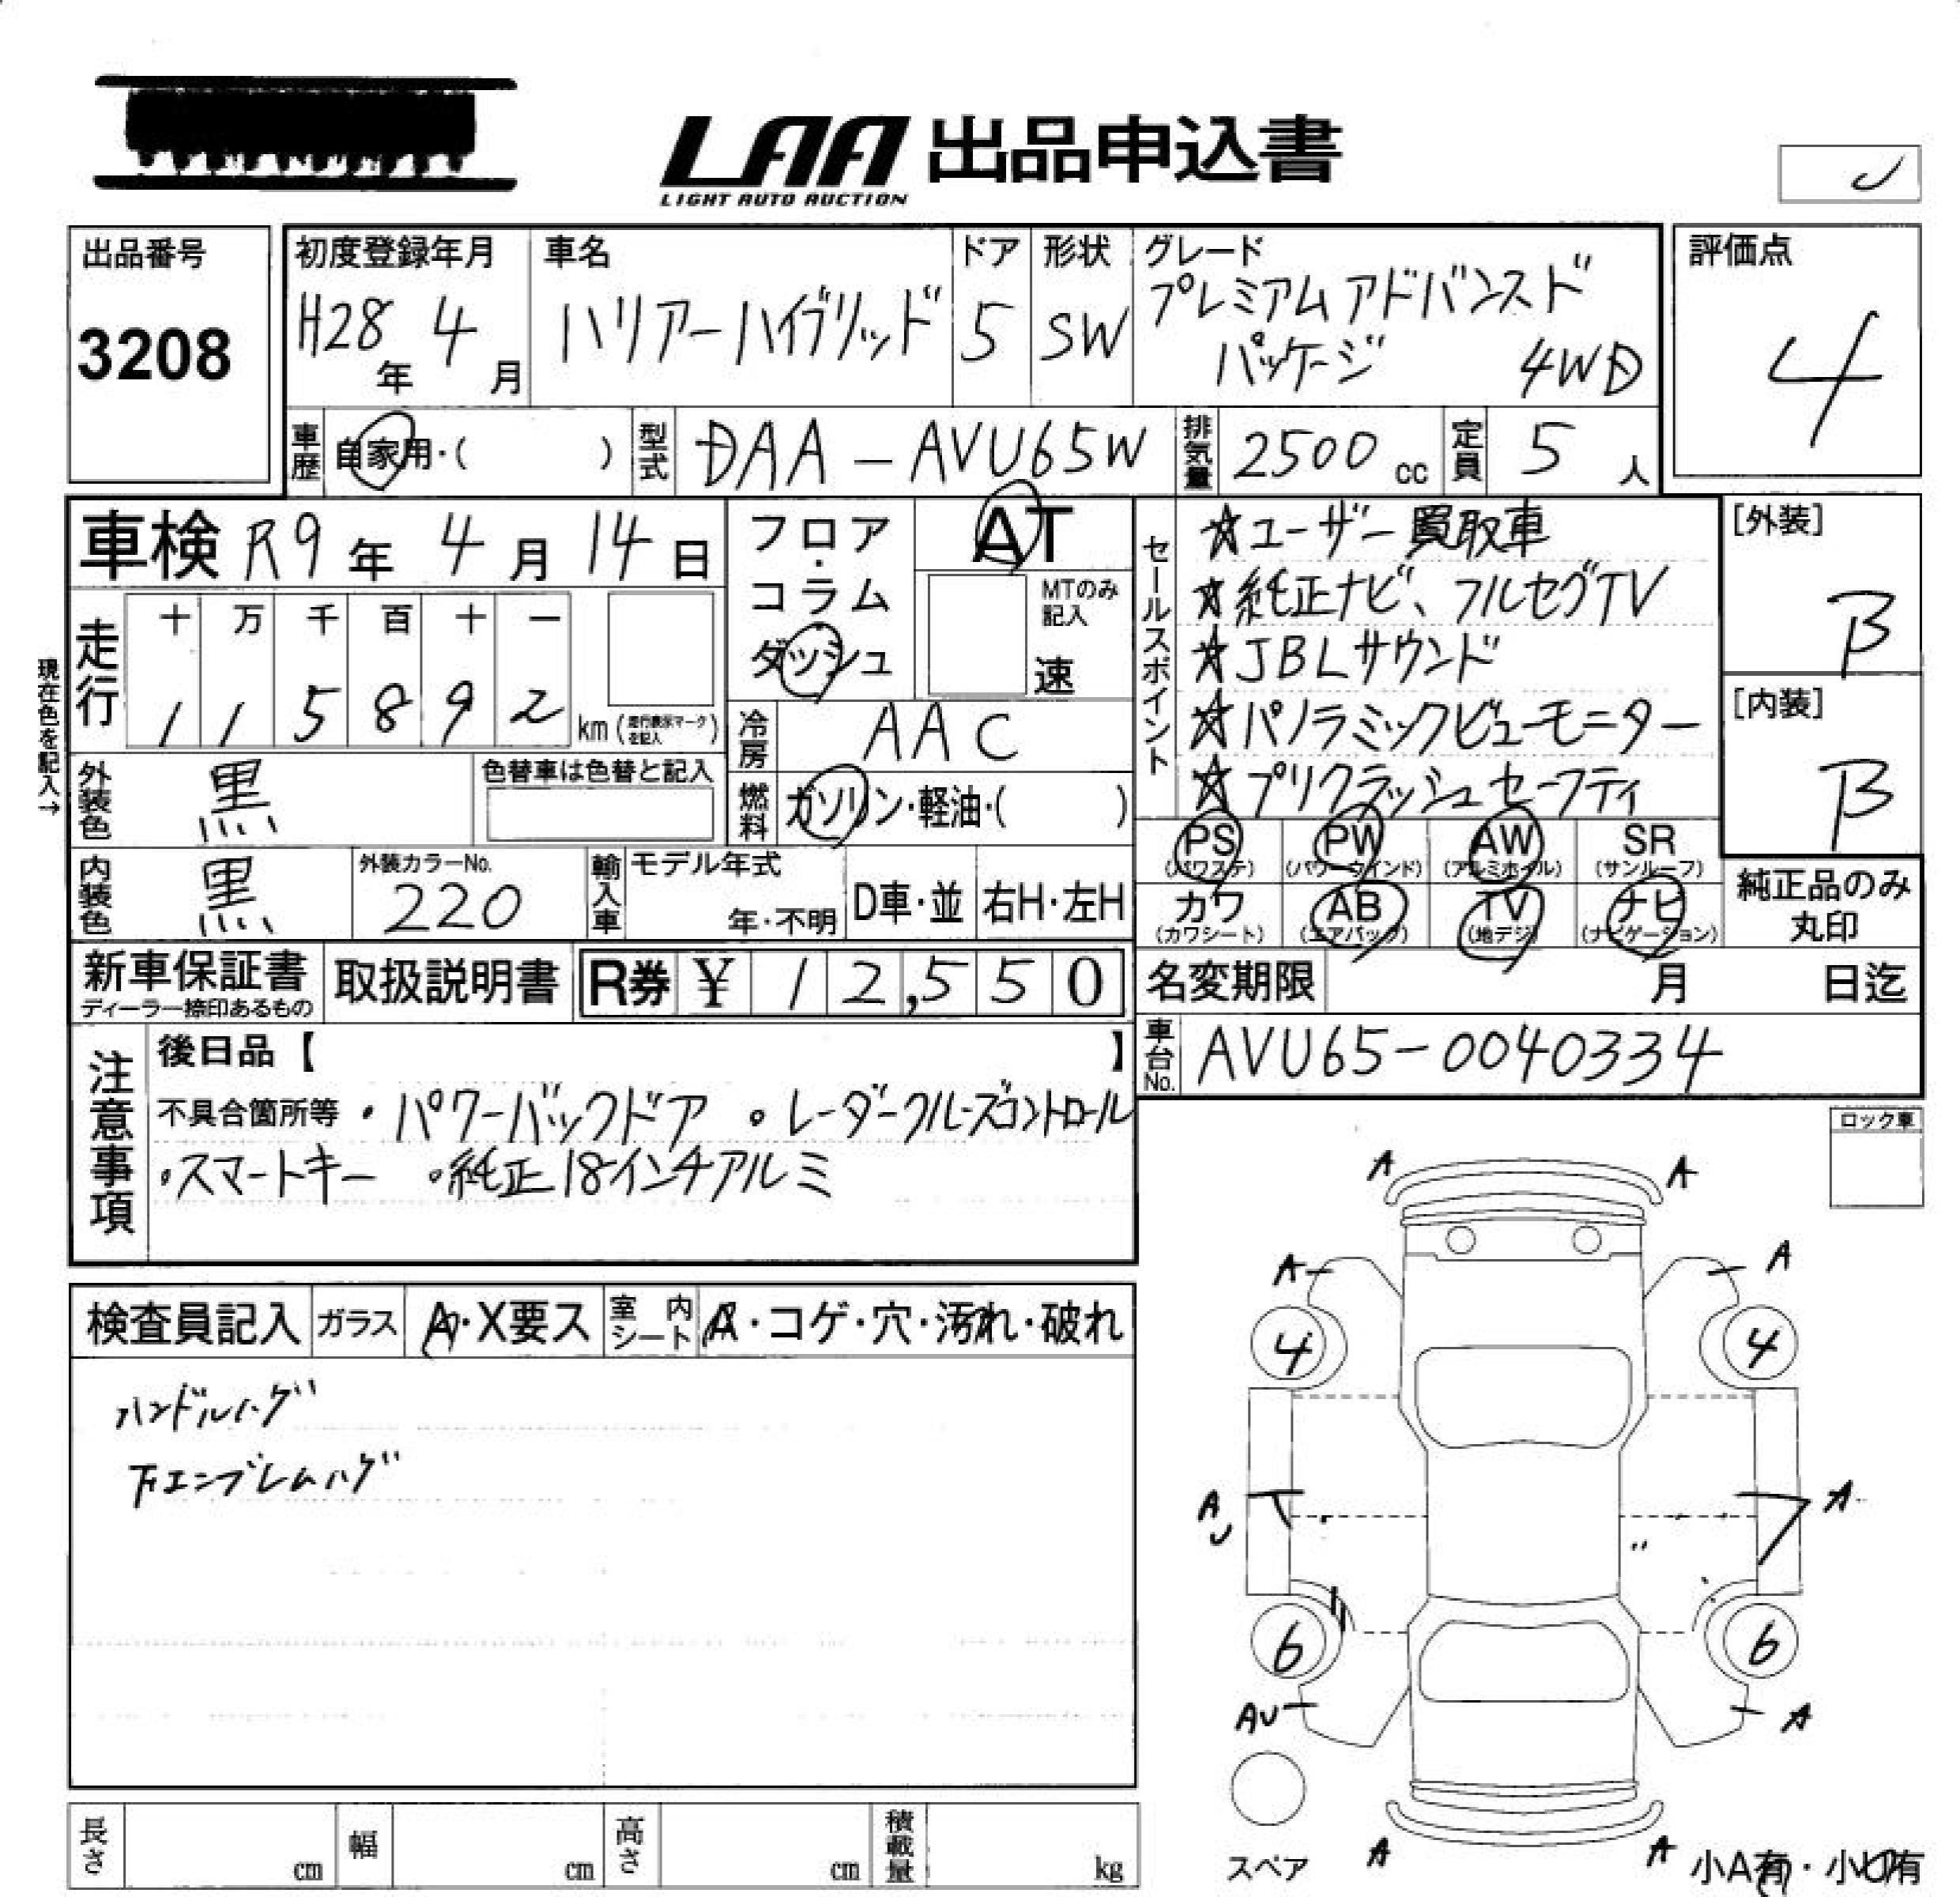 LAA 出品申込書
LIGHT AUTO AUCTION
出品番号
3208
初度登録年月
H28年 4月
車名
ハリアーハイブリッド
ドア
5
形状
SW
グレード
プレミアム アドバンスド
パッケージ 4WD
評価点
4
車歴 自家用・( )
型式 DAA-AVU65W
排気量 2500 cc
定員 5 人
車検 R9年 4月 14日
走行
十 万 千 百 十 一
1 1 5 8 9 2 km (走行表示マークを記入)
現在色を記入→
フロア・コラム
ダッシュ
AT
MTのみ記入
速
冷房 AAC
燃料 ガソリン・軽油・( )
外装色 黒
色替車は色替と記入
内装色 黒
外装カラーNo.
220
輸入車 モデル年式
年・不明
D車・並
右H・左H
セールスポイント
☆ユーザー買取車
☆純正ナビ、フルセグTV
☆JBLサウンド
☆パノラミックビューモニター
☆プリクラッシュセーフティ
[外装]
B
[内装]
B
PS (パワステ)
PW (パワーウインド)
AW (アルミホイル)
SR (サンルーフ)
カワ (カワシート)
AB (エアバック)
TV (地デジ)
ナビ (ナビゲーション)
純正品のみ
丸印
新車保証書
ディーラー捺印あるもの
取扱説明書
R券 ¥ 12,550
名変期限 月 日迄
車台No. AVU65-0040334
注意事項
後日品【 】
不具合箇所等 ・パワーバックドア ・レーダークルーズコントロール
・スマートキー ・純正18インチアルミ
ロック車
検査員記入
ガラス A・X要ス
室内シート A・コゲ・穴・汚れ・破れ
ハンドルハゲ
下エンブレムハゲ
A A
A A
4 4
A
U
A
6 6
AU A
A A
スペア
小A有・小U有
長さ cm
幅 cm
高さ cm
積載量 kg